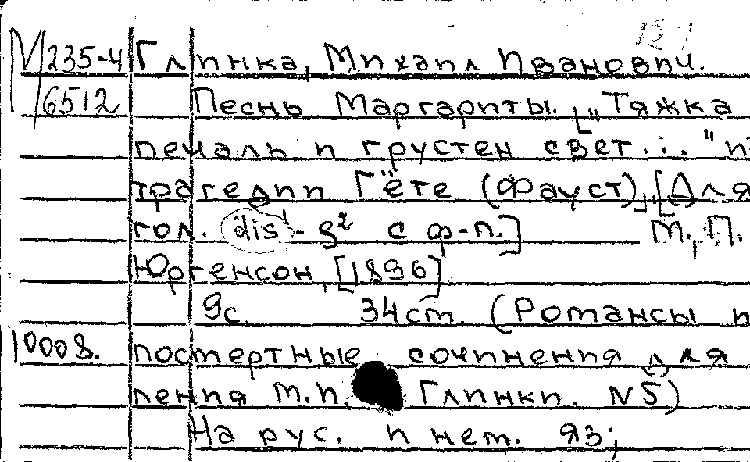 М 235-4 Глинка, Михаил Иванович.
6512 Песнь Маргариты. ["Тяжка
печаль и грустен свет..." из
трагедии Гёте (Фауст)]. [Для
гол. dis¹-g² с ф-п.] М., П.
Юргенсон, [1896]
9с. 34см. (Романсы и
10008. посмертные сочинения для
пения М.И. Глинки. N5)
На рус. и нем. яз;